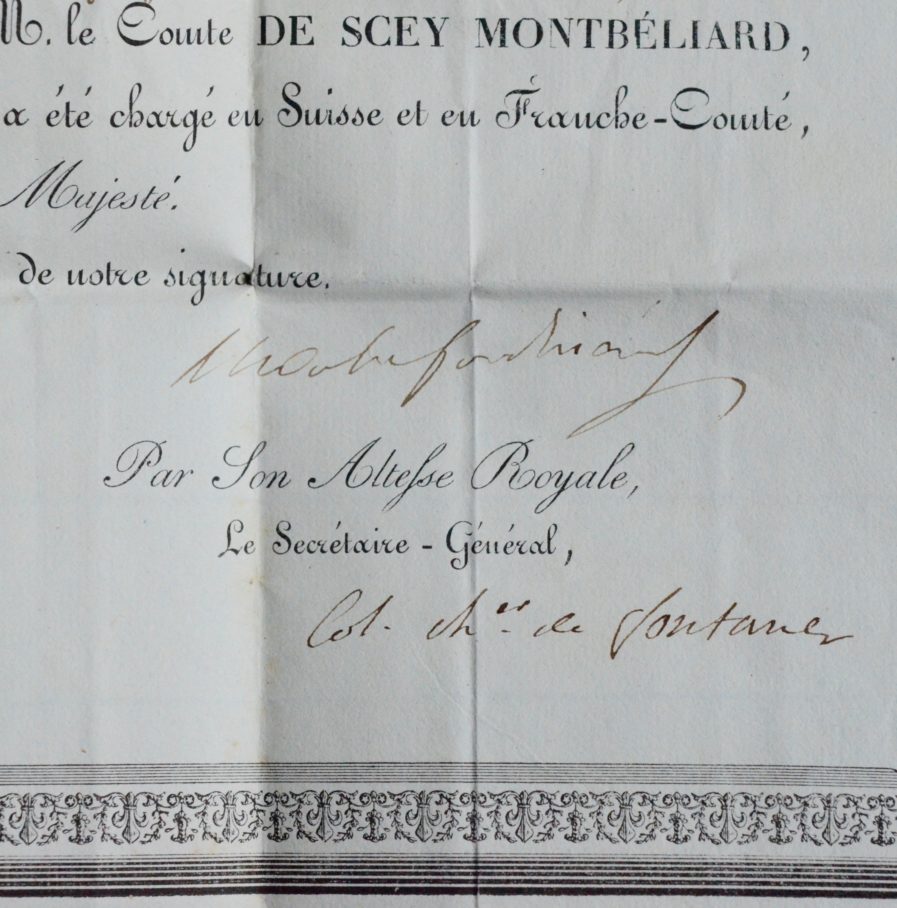 M. le Comte DE SCEY MONTBÉLIARD,
a été chargé en Suisse et en Franche-Comté,
Majesté.
de notre signature.
Par Son Altesse Royale,
Le Secrétaire-Général,
Col. ch.er de fontanes